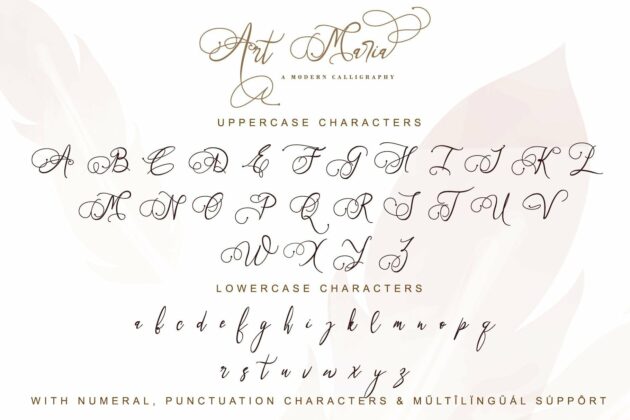 Art Maria
A MODERN CALLIGRAPHY
UPPERCASE CHARACTERS
A B C D E F G H I J K L
M N O P Q R S T U V
W X Y Z
LOWERCASE CHARACTERS
a b c d e f g h i j k l m n o p q
r s t u v w x y z
WITH NUMERAL, PUNCTUATION CHARACTERS & MŰLTÎLÏNGŰÁL SÚPPÖRT